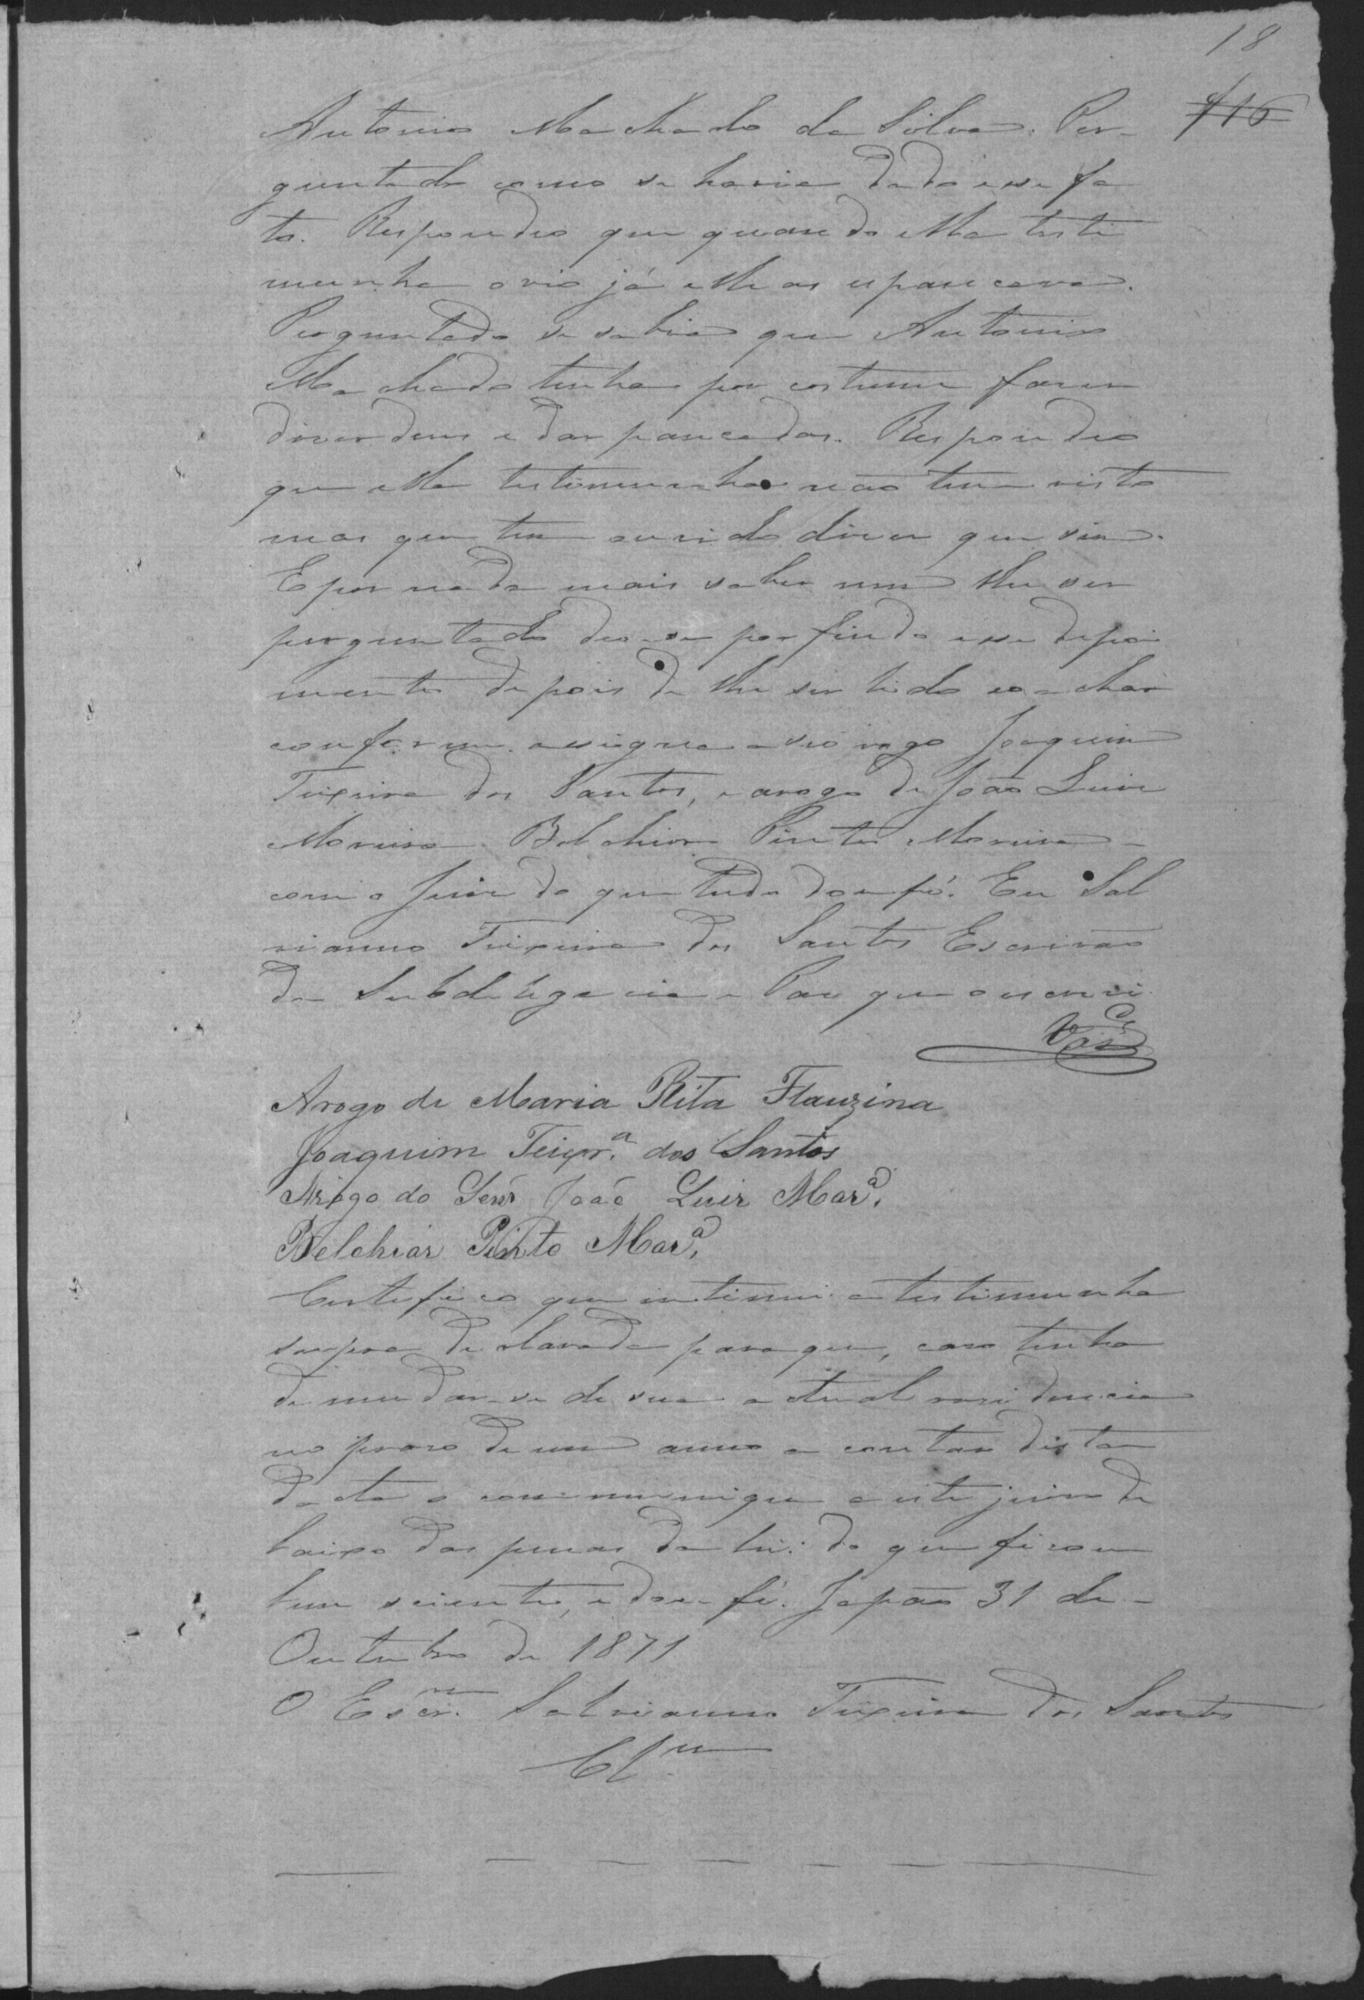 18
116
Antonio Machado da Silva. Per-
guntado como se havia dado esse fa
to. Respondeo que quando ella teste
munha o vio já elle as espancava.
Perguntado se sabia que Antonio
Machado tinha por costume fazer
dizordens e dar pancadas. Respondeo
que ella testemunha não tem visto
mas que tem ouvido dizer que sim.
E por nada mais saber nem lhe ser
perguntado deo-se por findo esse depoi
mento depois de lhe ser lido e o achar
conforme assigna a seo rogo Joaquim
Teixeira dos Santos, e arogo de João Luiz
Moreira Belchior Pinto Moreira
com o Juiz do que tudo dou fé. Eu Sal
vianno Teixeira dos Santos Escrivão
da Subdelegacia e Paz que o escrevi
Arogo de Maria Rita Flauzina
Joaquim Teixr.ª dos Santos
Arogo do Senr João Luiz Mor.ª
Belchior Pinto Mor.ª
Certifico que intimei a testemunha
supra declarada para que, caso tenha
de mudar-se de sua actual residencia
no prazo de um anno a contar desta
data o communique a este juizo de
baixo das penas da lei: do que ficou
bem sciente, e dou fé. Japão 31 de
Outubro de 1871
O Escr.m Salvianno Teixeira dos Santos
Cl.m